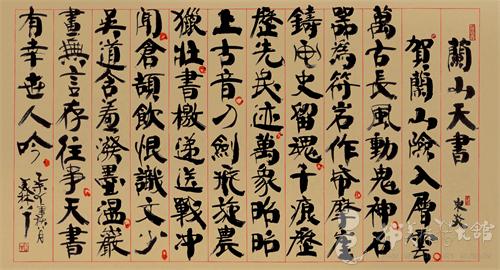 蘭山天書
賀蘭山險入層雲
萬古長風動鬼神石
器為符岩作帋磨崖
鑄史留魂千痕歷
歷先民迹萬象昭昭
上古音刀劍飛旋農
獵壯書檄遞送戰冲
聞倉頡飲恨識文少
吳道含羞潑墨溫巖
畫無言存往事天書
有幸世人吟